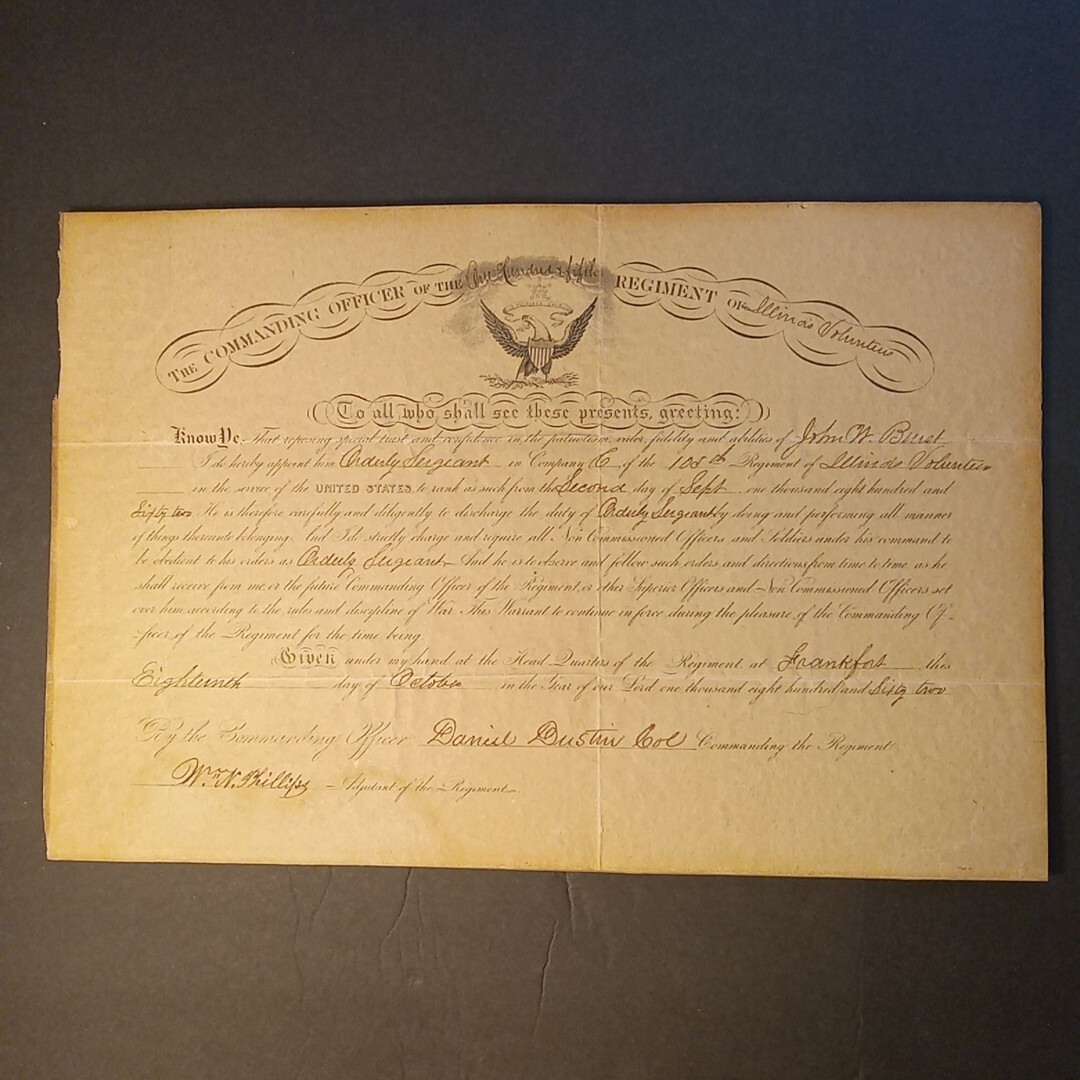 THE COMMANDING OFFICER OF THE One Hundred & fifth REGIMENT OF Illinois Volunteers
To all who shall see these presents, greeting:
Know Ye, That reposing special trust and confidence in the patriotism, valor, fidelity and abilities of John W. Burst
I do hereby appoint him Orderly Sergeant in Company C of the 105th Regiment of Illinois Volunteers
in the service of the UNITED STATES, to rank as such from the Second day of Sept one thousand eight hundred and
Sixty two. He is therefore carefully and diligently to discharge the duty of Orderly Sergeant by doing and performing all manner
of things thereunto belonging. And I do strictly charge and require all Non Commissioned Officers and Soldiers under his command to
be obedient to his orders as Orderly Sergeant And he is to observe and follow such orders and directions from time to time as he
shall receive from me or the future Commanding Officer of the Regiment, or other Superior Officers and Non Commissioned Officers set
over him, according to the rules and discipline of War. This Warrant to continue in force during the pleasure of the Commanding Of-
ficer of the Regiment for the time being.
Given under my hand at the Head Quarters of the Regiment at Frankfort this
Eighteenth day of October in the Year of our Lord one thousand eight hundred and Sixty two
By the Commanding Officer Daniel Dustin Col Commanding the Regiment
Wm N. Phillips Adjutant of the Regiment